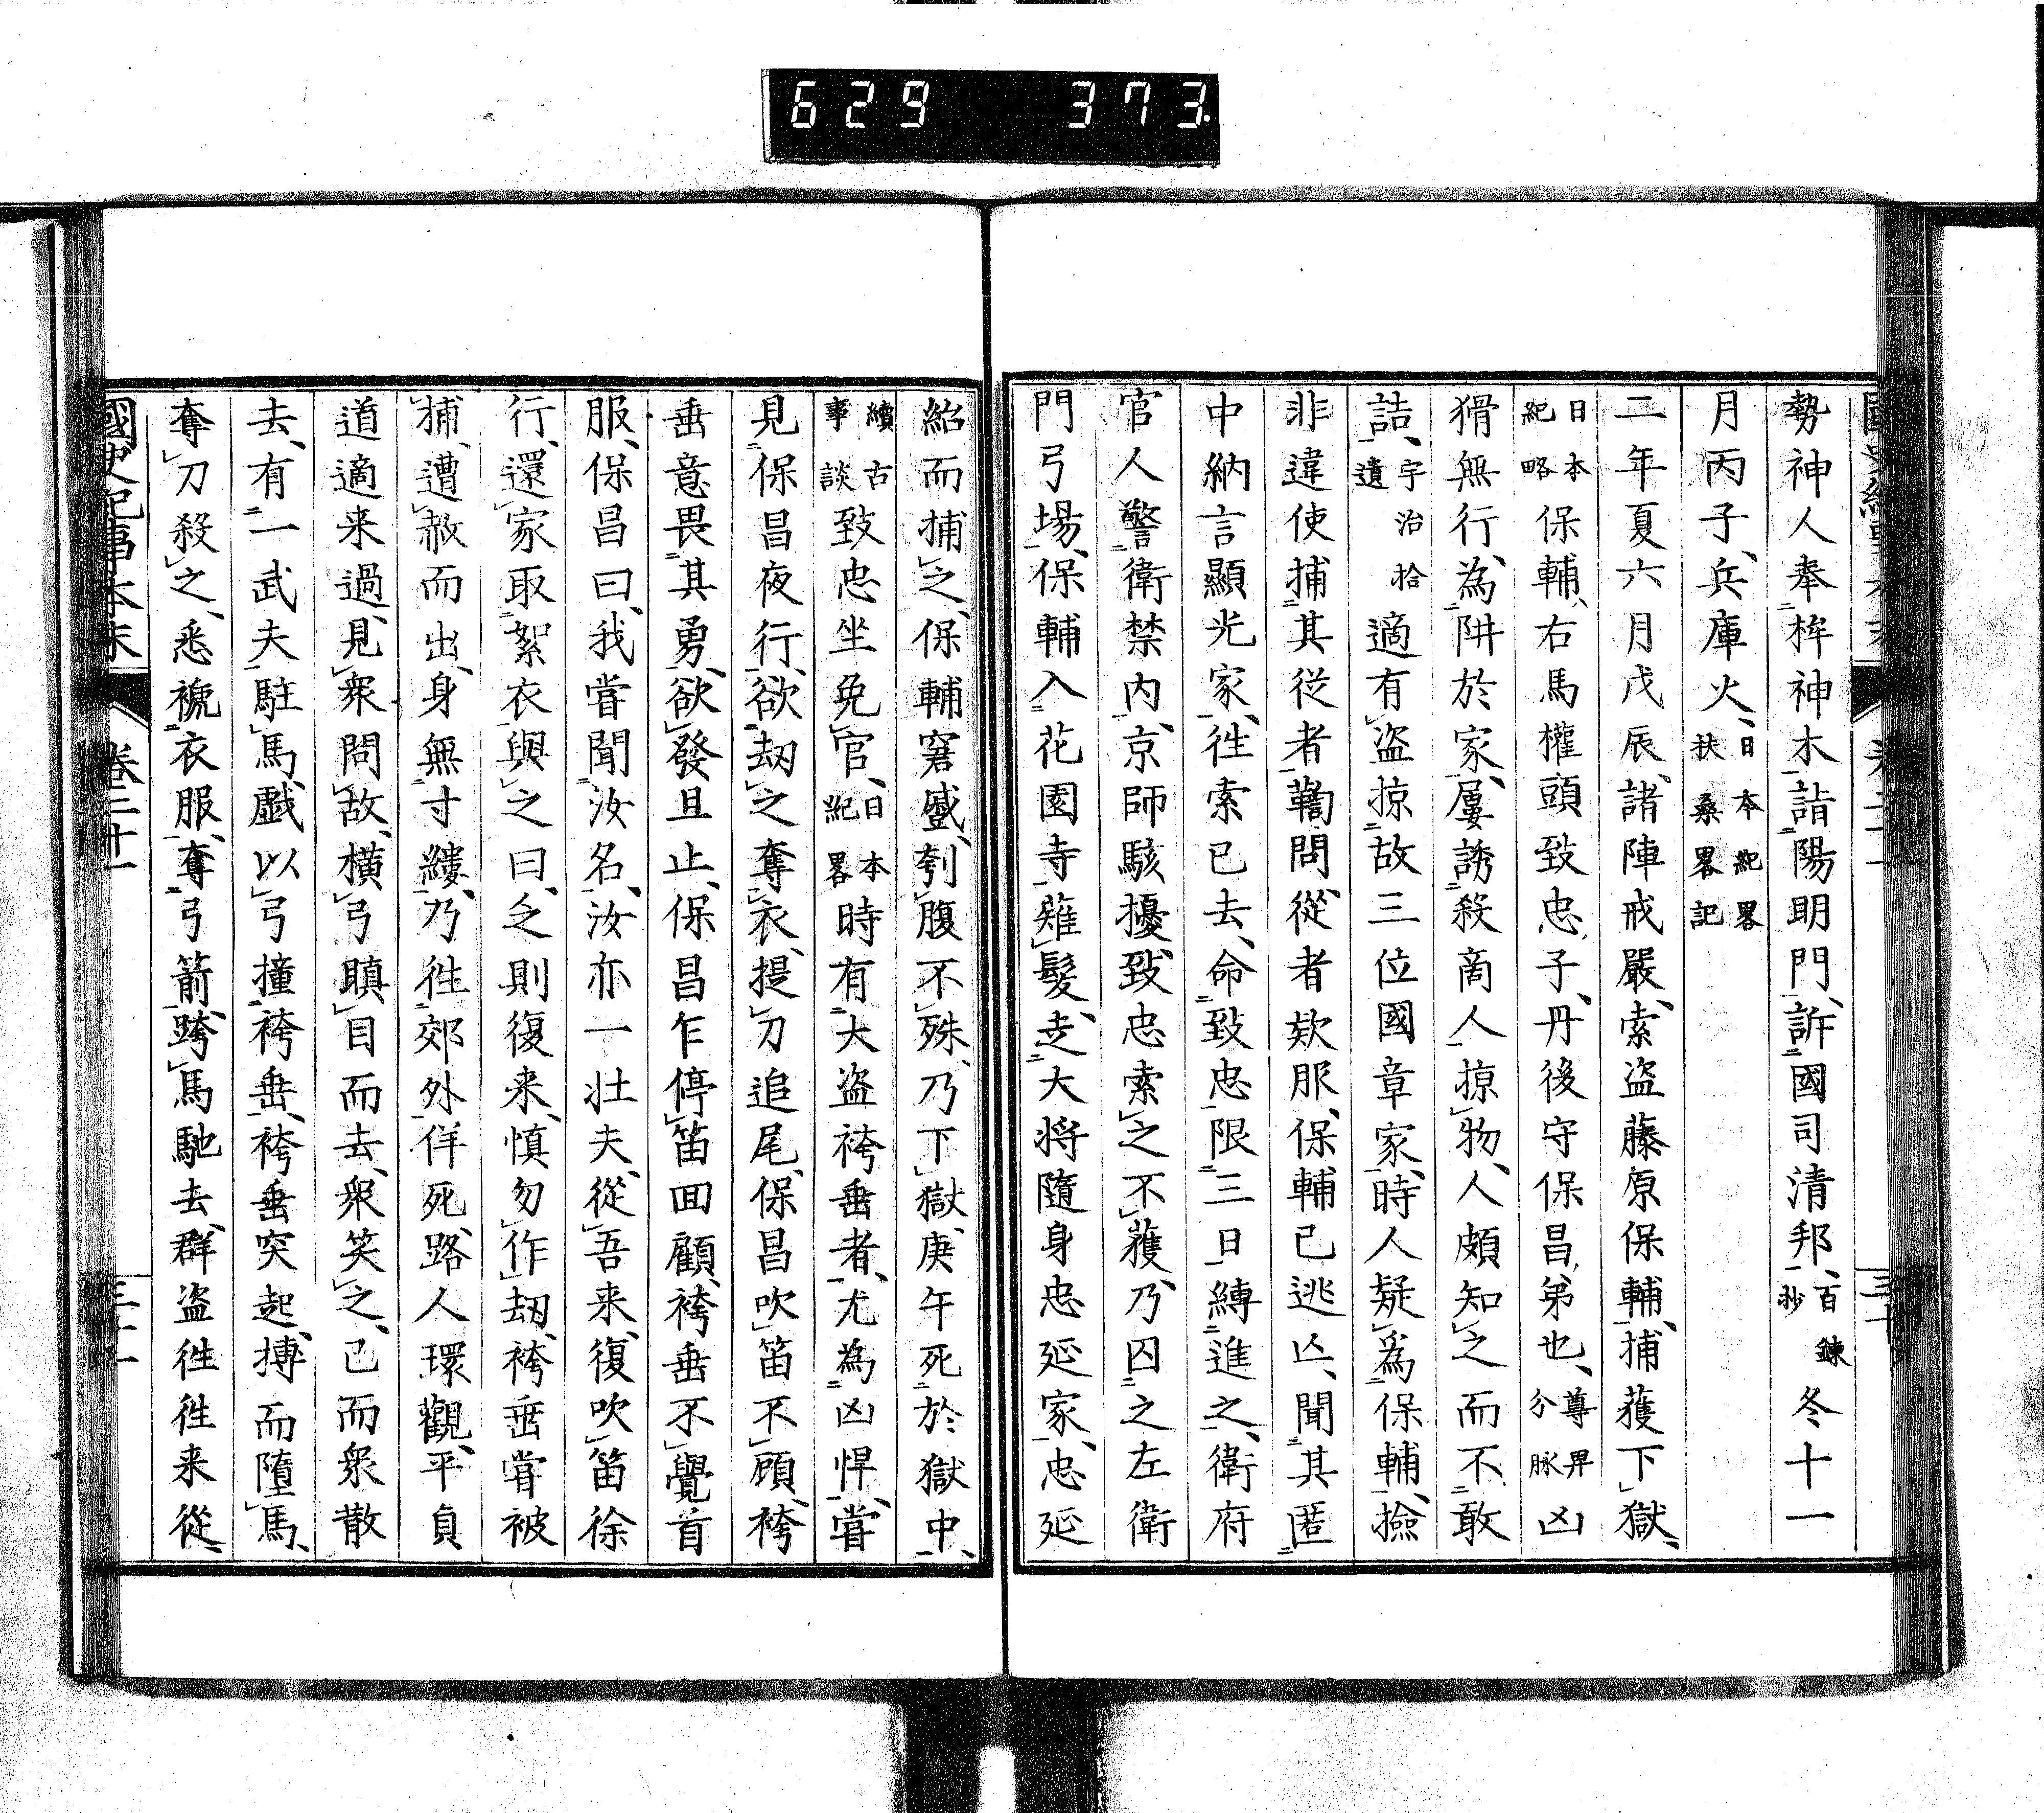 629 373.
勢神人奉桙神木詣陽明門、訴國司清邦、百鍊抄冬十一
月丙子、兵庫火、日本紀畧扶桑畧記
二年夏六月戊辰、諸陣戒嚴、索盜藤原保輔、捕獲下獄、
日本紀略保輔、右馬權頭致忠子、丹後守保昌弟也、尊卑分脉凶
猾無行、為阱於家、屢誘殺商人掠物、人頗知之而不敢
詰、宇治拾遺適有盜掠故三位國章家、時人疑為保輔、撿
非違使捕其從者鞫問、從者欵服、保輔已逃亾、聞其匿
中納言顯光家、徃索已去、命致忠限三日縛進之、衛府
官人警衛禁內、京師駭擾、致忠索之不獲、乃囚之左衛
門弓場、保輔入花園寺薙髮、走大将隨身忠延家、忠延
紿而捕之、保輔窘蹙、刳腹不殊、乃下獄、庚午死於獄中、
續古事談致忠坐免官、日本紀畧時有大盜袴垂者、尤為凶悍、嘗
見保昌夜行、欲劫之奪衣、提刀追尾、保昌吹笛不顧、袴
垂意畏其勇、欲發且止、保昌乍停笛回顧、袴垂不覺首
服、保昌曰、我嘗聞汝名、汝亦一壮夫、從吾来、復吹笛徐
行、還家取絮衣與之曰、乏則復来、慎勿作劫、袴垂嘗被
捕、遭赦而出、身無寸縷、乃徃郊外佯死、路人環觀、平貞
道適来過、見衆問故、橫弓瞋目而去、衆笑之、已而衆散
去、有一武夫駐馬、戲以弓撞袴垂、袴垂突起、摶而墮馬、
奪刀殺之、悉褫衣服、奪弓箭、跨馬馳去、群盜徃徃来從、
國史紀事本末 卷二十一